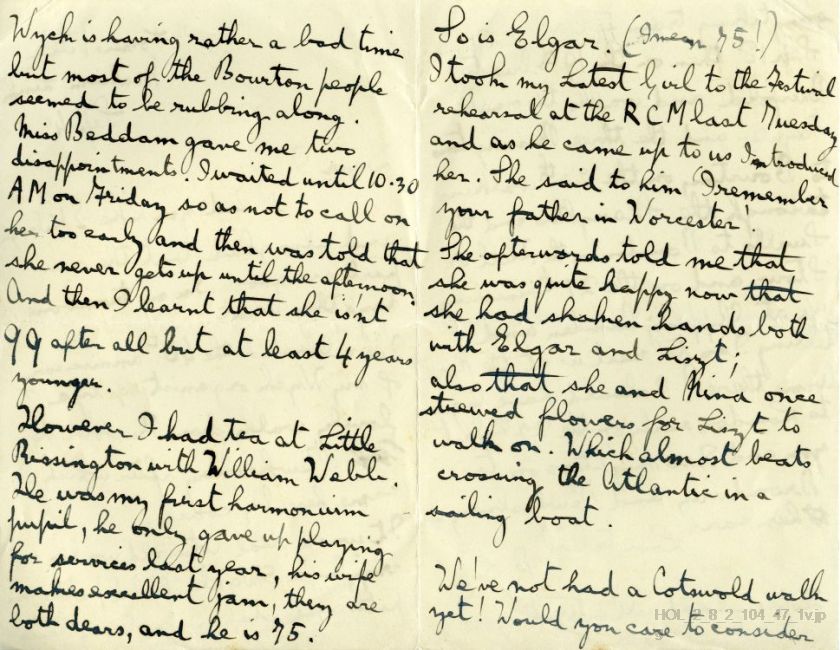 Wyck is having rather a bad time
but most of the Bourton people
seemed to be rubbing along.
Miss Beddam gave me two
disappointments. I waited until 10.30
AM on Friday so as not to call on
her too early and then was told that
she never gets up until the afternoon.
And then I learnt that she isn't
99 after all but at least 4 years
younger.
However I had tea at Little
Rissington with William Webb.
He was my first harmonium
pupil, he only gave up playing
for services last year, his wife
makes excellent jam, they are
both dears, and he is 75.
So is Elgar. (I mean 75!)
I took my Latest Girl to the Festival
rehearsal at the RCM last Tuesday
and as he came up to us I introduced
her. She said to him 'I remember
your father in Worcester'.
She afterwards told me that
she was quite happy now that
she had shaken hands both
with Elgar and Liszt;
also that she and Nina once
strewed flowers for Liszt to
walk on. Which almost beats
crossing the Atlantic in a
sailing boat.
We've not had a Cotswold walk
yet! Would you care to consider
HOL_2_8_2_104_47_1v.jp